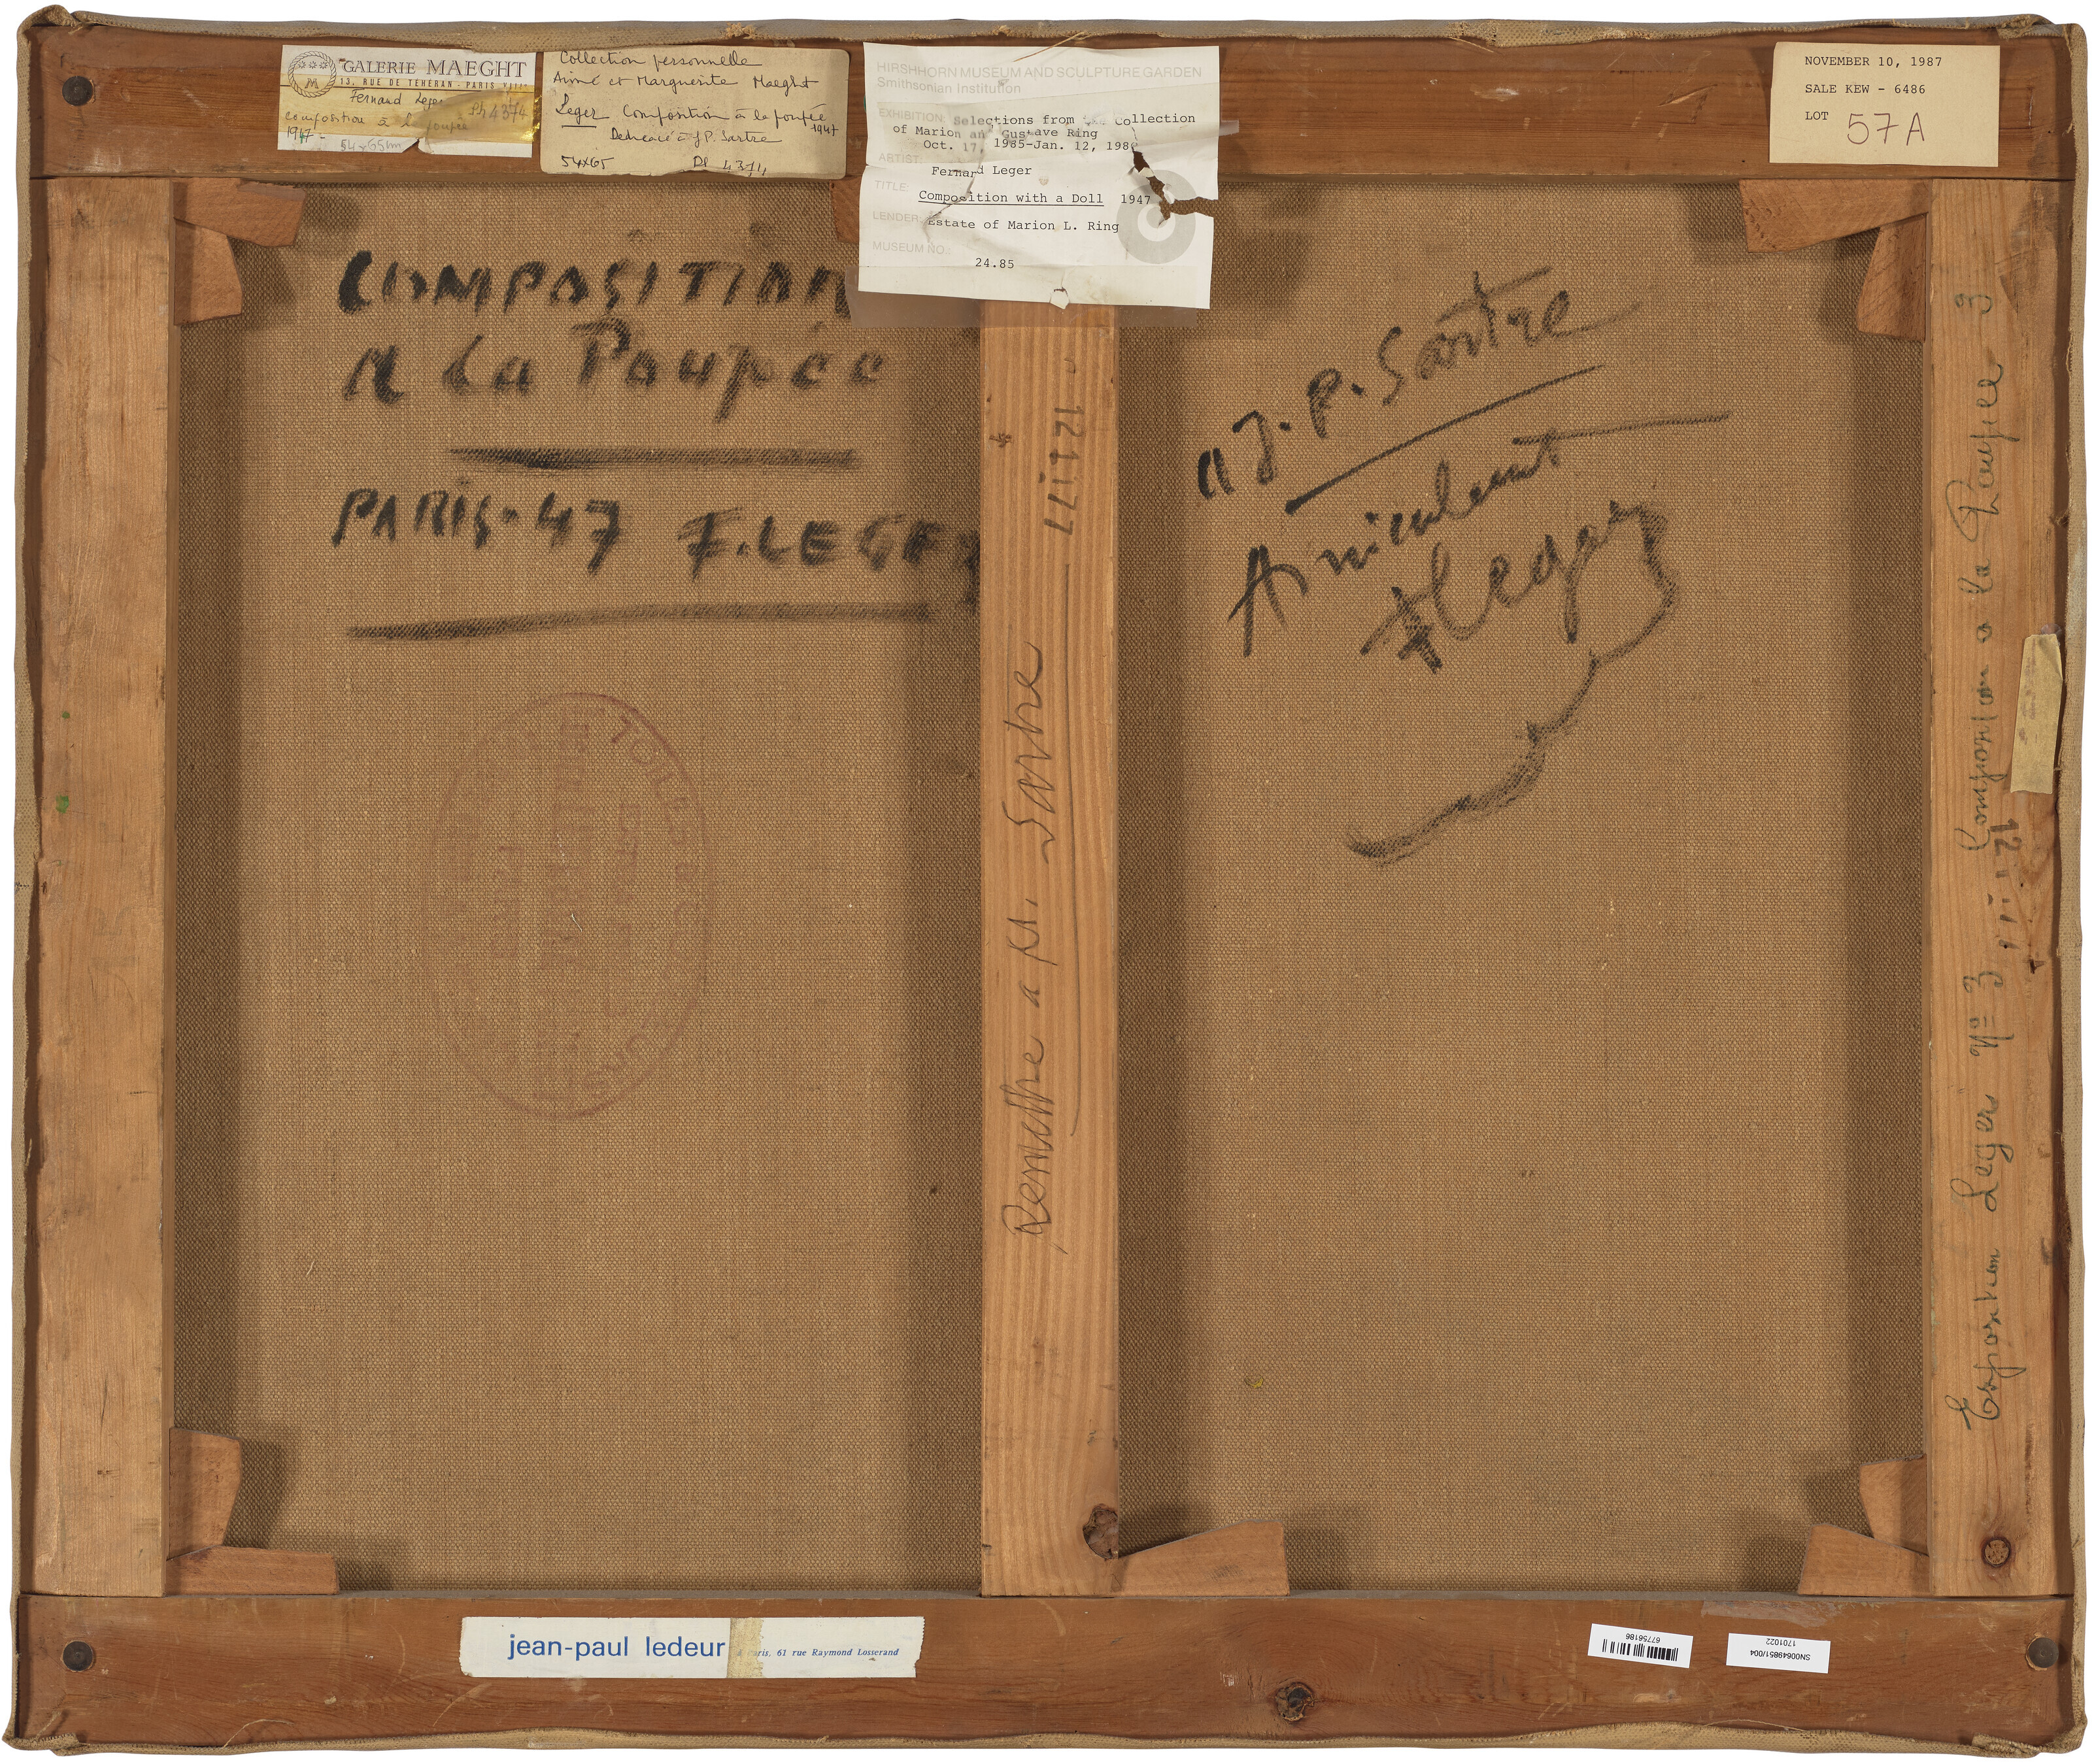 GALERIE MAEGHT
13, RUE DE TÉHÉRAN - PARIS VIIIe
Fernand Leger
Ph 4374
composition à la poupée
1947
54x65cm
Collection personnelle
Aimé et Marguerite Maeght
Leger Composition à la poupée
1947
Dédicacé à J P. Sartre
54x65
Ph 4374
HIRSHHORN MUSEUM AND SCULPTURE GARDEN
Smithsonian Institution
EXHIBITION: Selections from Collection
of Marion an Gustave Ring
Oct. 17, 1985-Jan. 12, 198
ARTIST:
Fernard Leger
TITLE:
Composition with a Doll 1947
LENDER: Estate of Marion L. Ring
MUSEUM NO.:
24.85
NOVEMBER 10, 1987
SALE KEW - 6486
LOT 57A
COMPOSITION
A La Poupée
PARIS-47 F.LEGER
a J.P. Sartre
Amicalement
FLeger
TOILES
PARIS
Remettre a Ms. Sartre
Exposition Leger Nº 3 Composition a la Poupee 3
jean-paul ledeur
paris, 61 rue Raymond Losserand
67756186
SN00649851/004
1701022